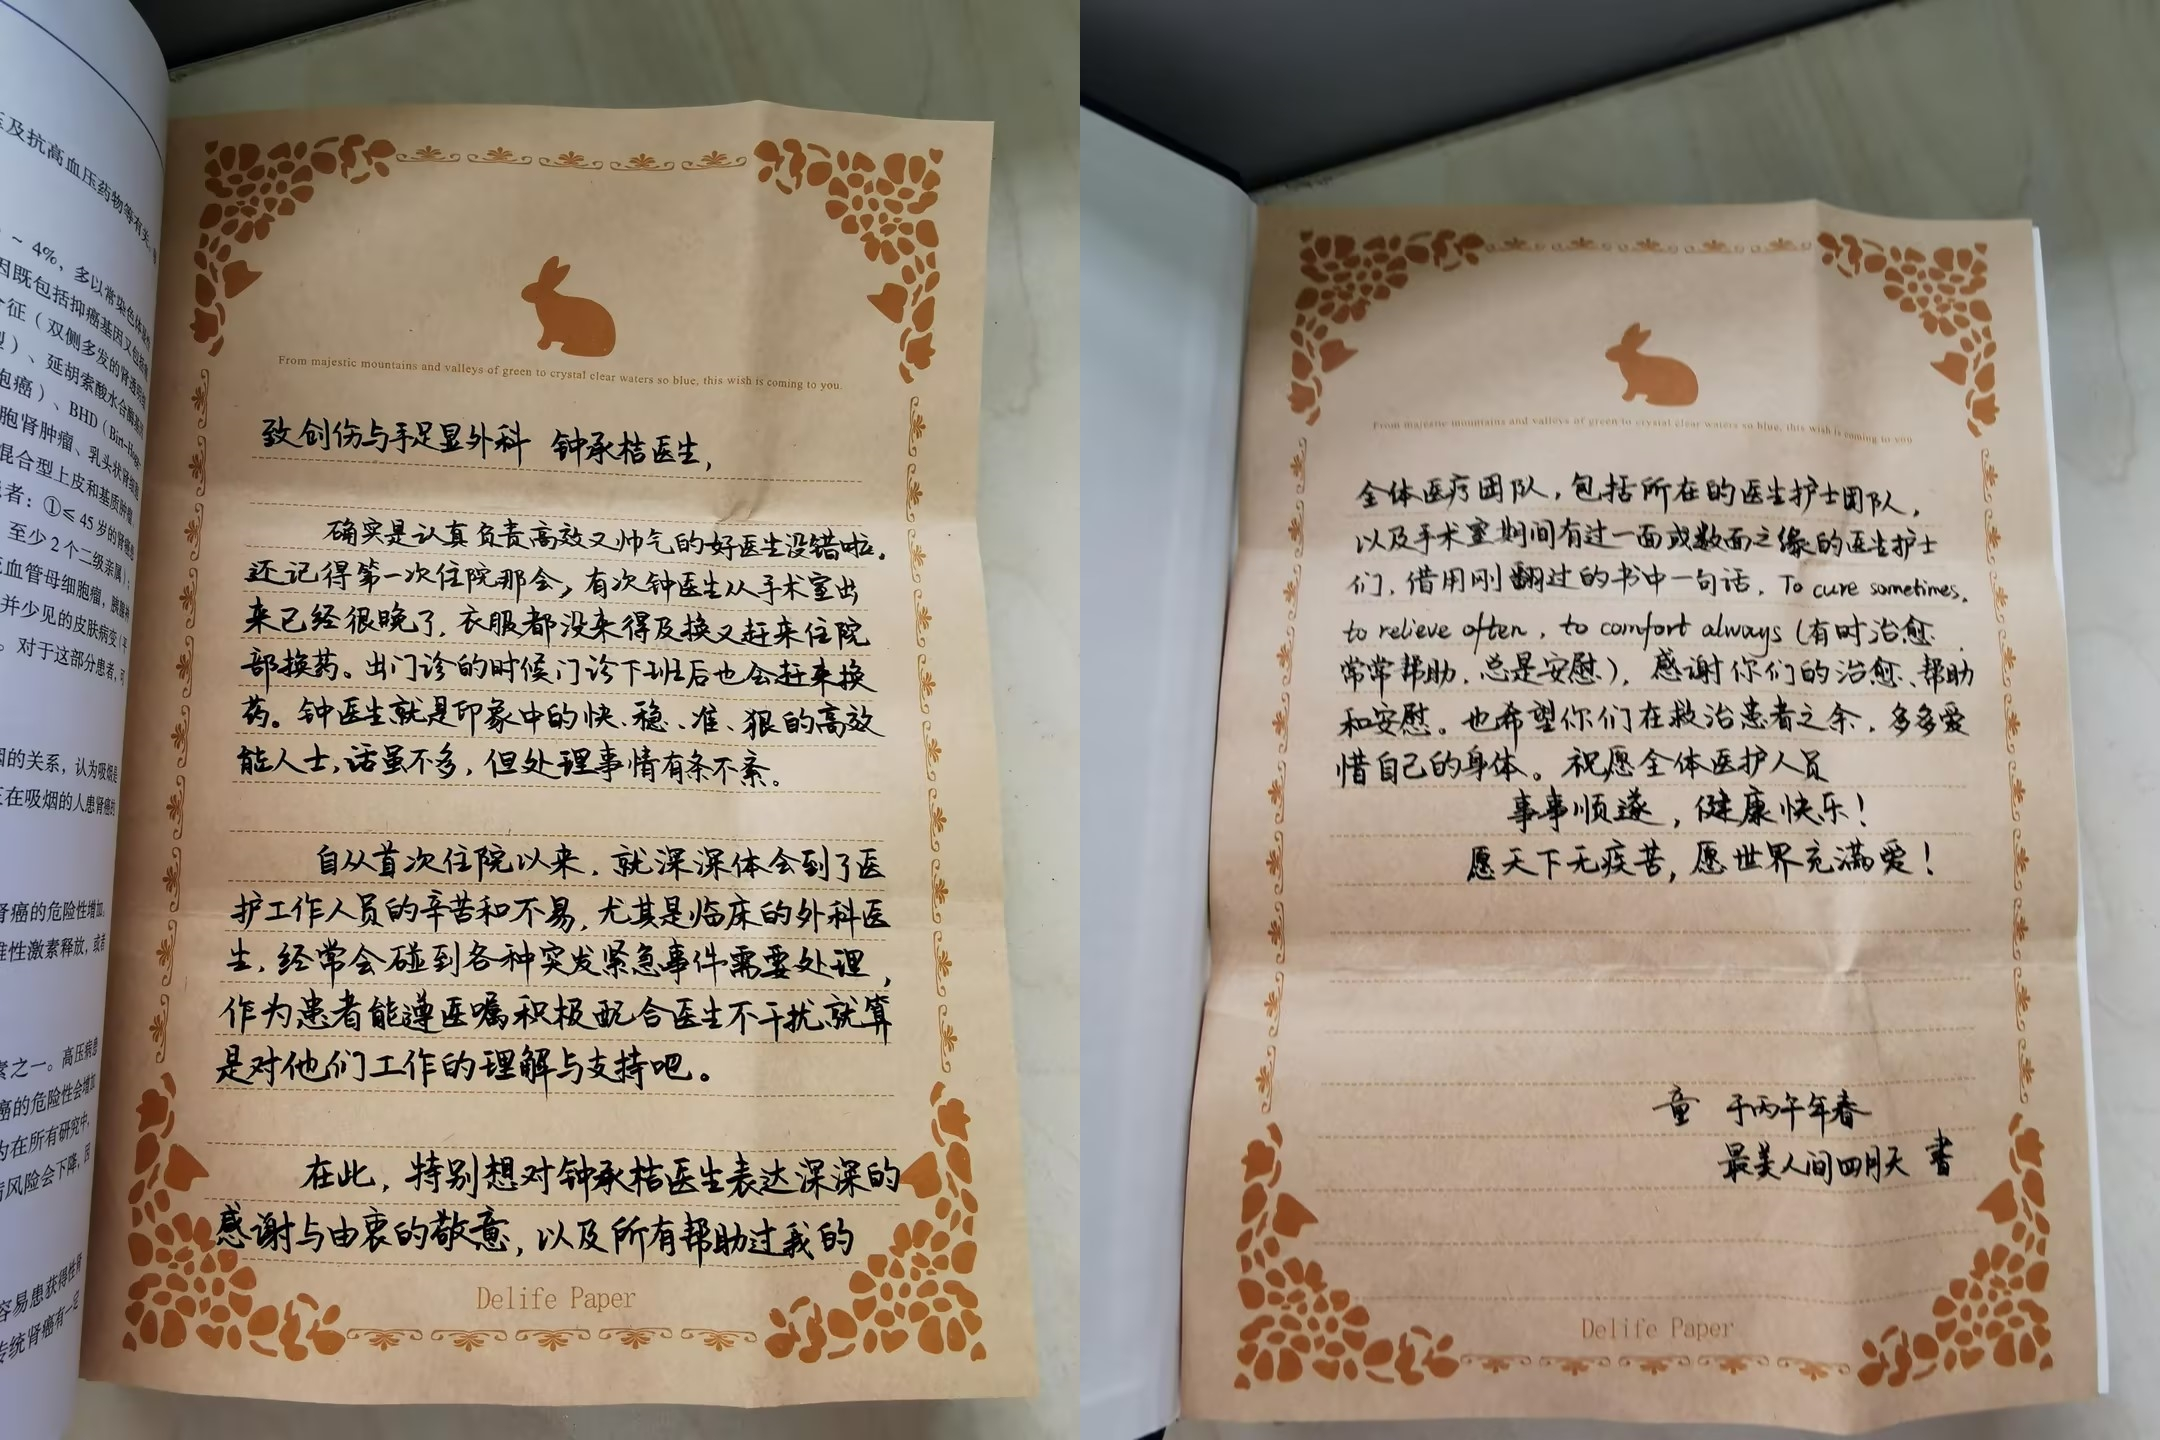 压及抗高血压药物等有关。
~ 4%，多以常染色体显性
因既包括抑癌基因又包括
征（双侧多发的肾透明
型）、延胡索酸水合酶基因
胞癌）、BHD（Birt-Hogg-
胞肾肿瘤、乳头状肾细胞
混合型上皮和基质肿瘤、
者：①≤ 45 岁的肾癌患
至少 2 个二级亲属）；
血管母细胞瘤，胰腺神
并少见的皮肤病变（平
。对于这部分患者，可
因的关系，认为吸烟是
在吸烟的人患肾癌的
肾癌的危险性增加，
性激素释放，或者
素之一。高压病患
癌的危险性会增加
为在所有研究中，
病风险会下降，因
容易患获得性肾
传统肾癌有一定
From majestic mountains and valleys of green to crystal clear waters so blue, this wish is coming to you.
致创伤与手足显外科 钟承桔医生，
确实是认真负责高效又帅气的好医生没错啦。
还记得第一次住院那会，有次钟医生从手术室出
来已经很晚了，衣服都没来得及换又赶来住院
部换药。出门诊的时候门诊下班后也会赶来换
药。钟医生就是印象中的快、稳、准、狠的高效
能人士，话虽不多，但处理事情有条不紊。
自从首次住院以来，就深深体会到了医
护工作人员的辛苦和不易，尤其是临床的外科医
生，经常会碰到各种突发紧急事件需要处理，
作为患者能遵医嘱积极配合医生不干扰就算
是对他们工作的理解与支持吧。
在此，特别想对钟承桔医生表达深深的
感谢与由衷的敬意，以及所有帮助过我的
Delife Paper
From majestic mountains and valleys of green to crystal clear waters so blue, this wish is coming to you
全体医疗团队，包括所在的医生护士团队，
以及手术室期间有过一面或数面之缘的医生护士
们，借用刚翻过的书中一句话，To cure sometimes,
to relieve often, to comfort always（有时治愈、
常常帮助、总是安慰），感谢你们的治愈、帮助
和安慰。也希望你们在救治患者之余，多多爱
惜自己的身体。祝愿全体医护人员
事事顺遂，健康快乐！
愿天下无疾苦，愿世界充满爱！
童 于丙午年春
最美人间四月天 書
Delife Paper